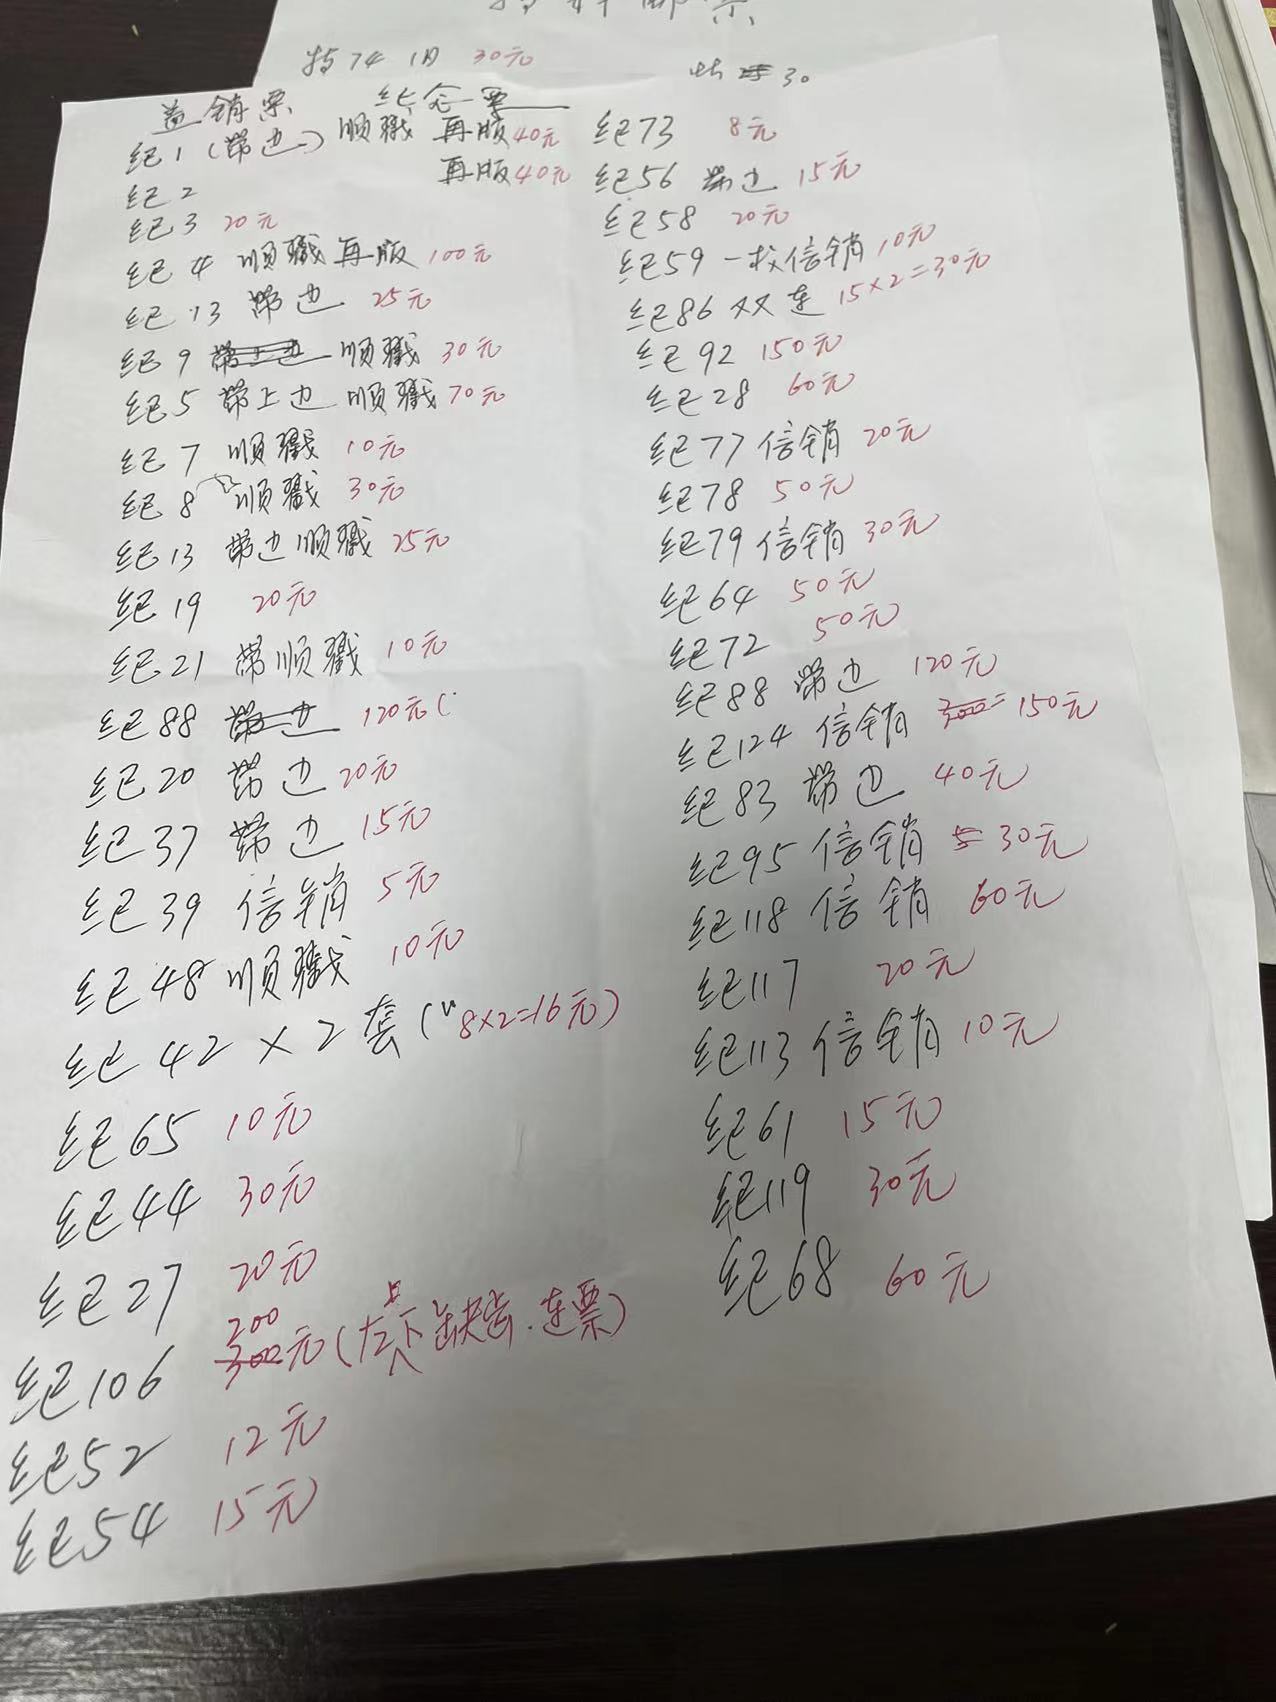 特74 1月 30元
盖销票 纪念票
纪1（带边）顺戳 再版40元
纪2 再版40元
纪3 20元
纪4 顺戳再版 100元
纪13 带边 25元
纪9 带上边 顺戳 30元
纪5 带上边 顺戳 70元
纪7 顺戳 10元
纪8 顺戳 30元
纪13 带边顺戳 25元
纪19 20元
纪21 带顺戳 10元
纪88 带边 120元（
纪20 带边 20元
纪37 带边 15元
纪39 信销 5元
纪48 顺戳 10元
纪42×2套（8×2=16元）
纪65 10元
纪44 30元
纪27 20元
200
纪106 300元（左下缺齿.连票）
纪52 12元
纪54 15元
30
纪73 8元
纪56 带边 15元
纪58 20元
纪59 一枚信销 10元
纪86 双连 15×2=30元
纪92 150元
纪28 60元
纪77 信销 20元
纪78 50元
纪79 信销 30元
纪64 50元
纪72 50元
纪88 带边 120元
纪124 信销 300 150元
纪83 带边 40元
纪95 信销 30元
纪118 信销 60元
纪117 20元
纪113 信销 10元
纪61 15元
纪119 30元
纪68 60元